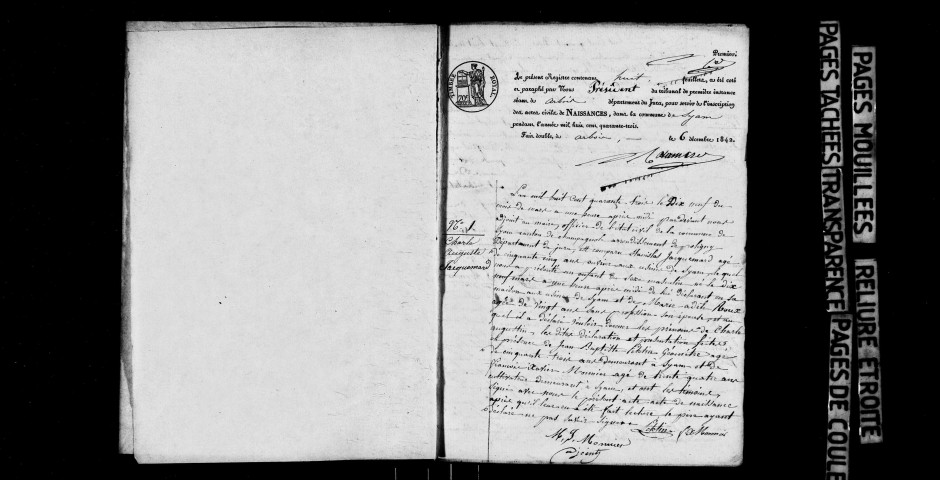 Première.
Le présent Registre contenant huit feuillets, a été coté
et paraphé par Nous Président du tribunal de première instance
séant à arbois département du Jura, pour servir à l'inscription
des actes civils de NAISSANCES, dans la commune de Syam
pendant l'année mil huit cent quarante-trois.
Fait double, à arbois, le 6 décembre 1842.
TIMBRE ROYAL
N.º 1.
Charle
auguste
Jacquemard
L'an mil huit cent quarante trois le Dix neuf du
mois de mars a une heure après midi par devant nous
adjoint au maire, officier de l'état civil de la commune de
Syam canton de champagnole arrondissement de poligny
Département du jura, est comparu Stanislas Jacquemard agé
de cinquante cinq ans ouvrier aux usines de Syam, lequel
nous a présenté un enfant de Sexe masculin né le Dix
neuf mars a une heure après midi de lui déclarant en sa
maison aux usines de Syam et de Marie adèle Roux
agée de vingt ans Sans profession son épouse et au
quel il a déclaré vouloir donner les prénoms de Charle
augustin. les dites déclaration et présentation faites
en présence de Jean Baptiste agé
de cinquante trois ans demeurant à Syam et de
françois Xavier Monnier agé de trente quatre ans
cultivateur demeurant à Syam, et ont les témoins,
signé avec nous le présent acte de naissance
après qu'il leur en a été fait lecture le père ayant
déclaré ne pas savoir signer
Monnier
adjoint
PAGES TACHEES TRANSPARENCE PAGES DE COULE
PAGES MOUILLEES RELIURE ETROITE